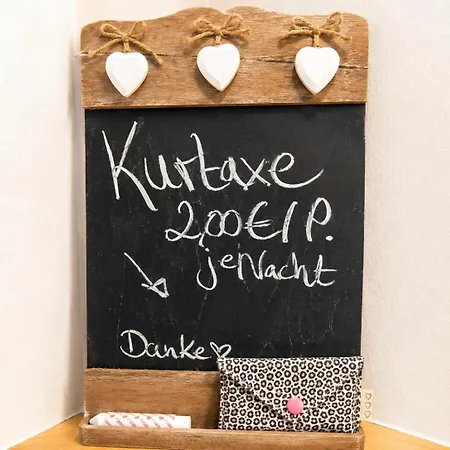 Kurtaxe
2,00€/P.
je Nacht
Danke♡